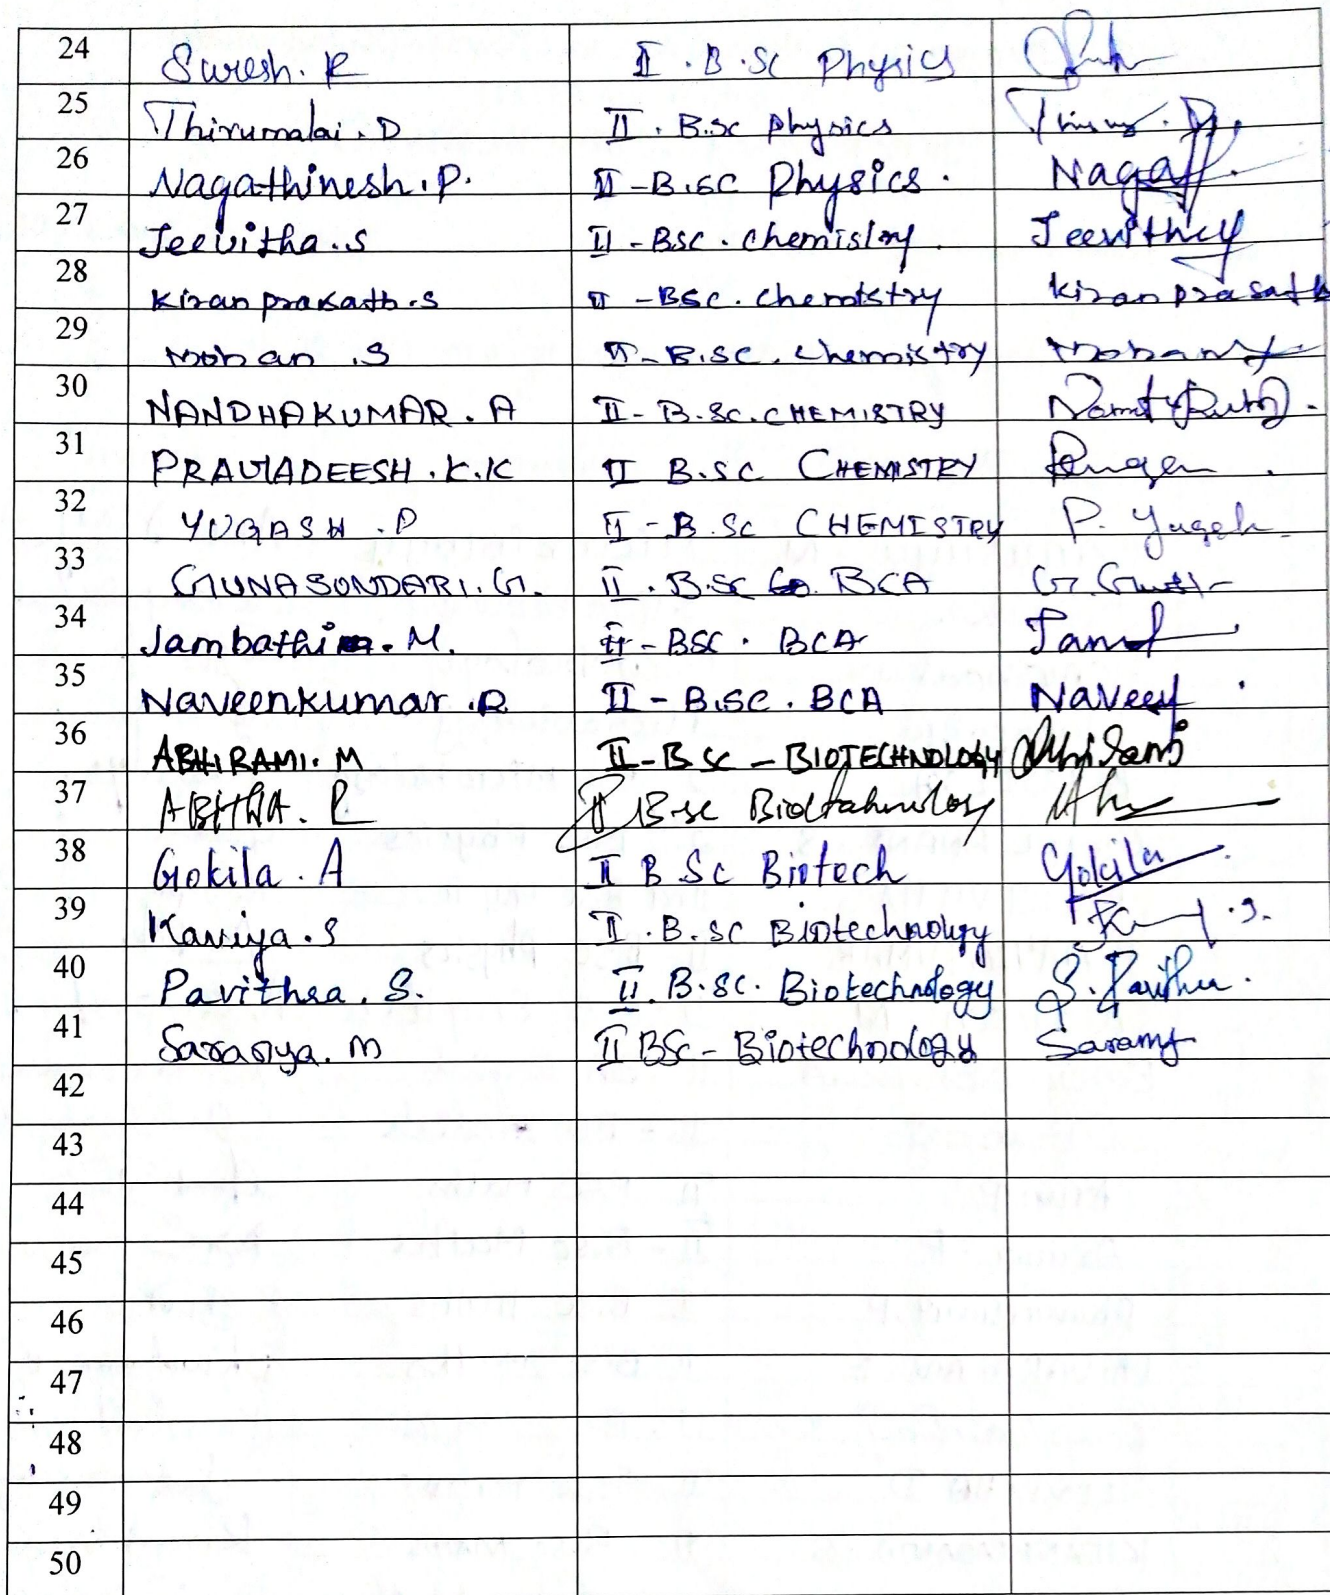 24 Suresh. R II . B .Sc Physics
25 Thirumalai . D II . B.sc physics
26 Nagathinesh . P. II - B.SC Physics .
27 Jeevitha .S II - BSC . chemistry . Jeevitha
28 Kiran prakash .S II - BSC . Chemistry Kiran prasath
29 Mohan .S II - B.SC . Chemistry Mohan
30 NANDHAKUMAR . A II - B.Sc. CHEMISTRY
31 PRAVIADEESH . K.K II B.SC CHEMISTRY
32 YUGASH . P II - B.Sc CHEMISTRY P. Yugesh
33 GUNASUNDARI. G. II . B.Sc BCA G.
34 Jambathi . M. II - BSC . BCA
35 Naveenkumar .R II - B.SC . BCA Naveen
36 ABHIRAMI. M II - B SC - BIOTECHNOLOGY Abhirami
37 ABITHA. R II B.sc Biotechnology
38 Gokila . A II B Sc Biotech Gokila
39 Kaviya . S II . B. SC Biotechnology
40 Pavithra . S. II. B.SC. Biotechnology S. Pavithra .
41 Saranya. M II BSc - Biotechnology Saranya
42
43
44
45
46
47
48
49
50